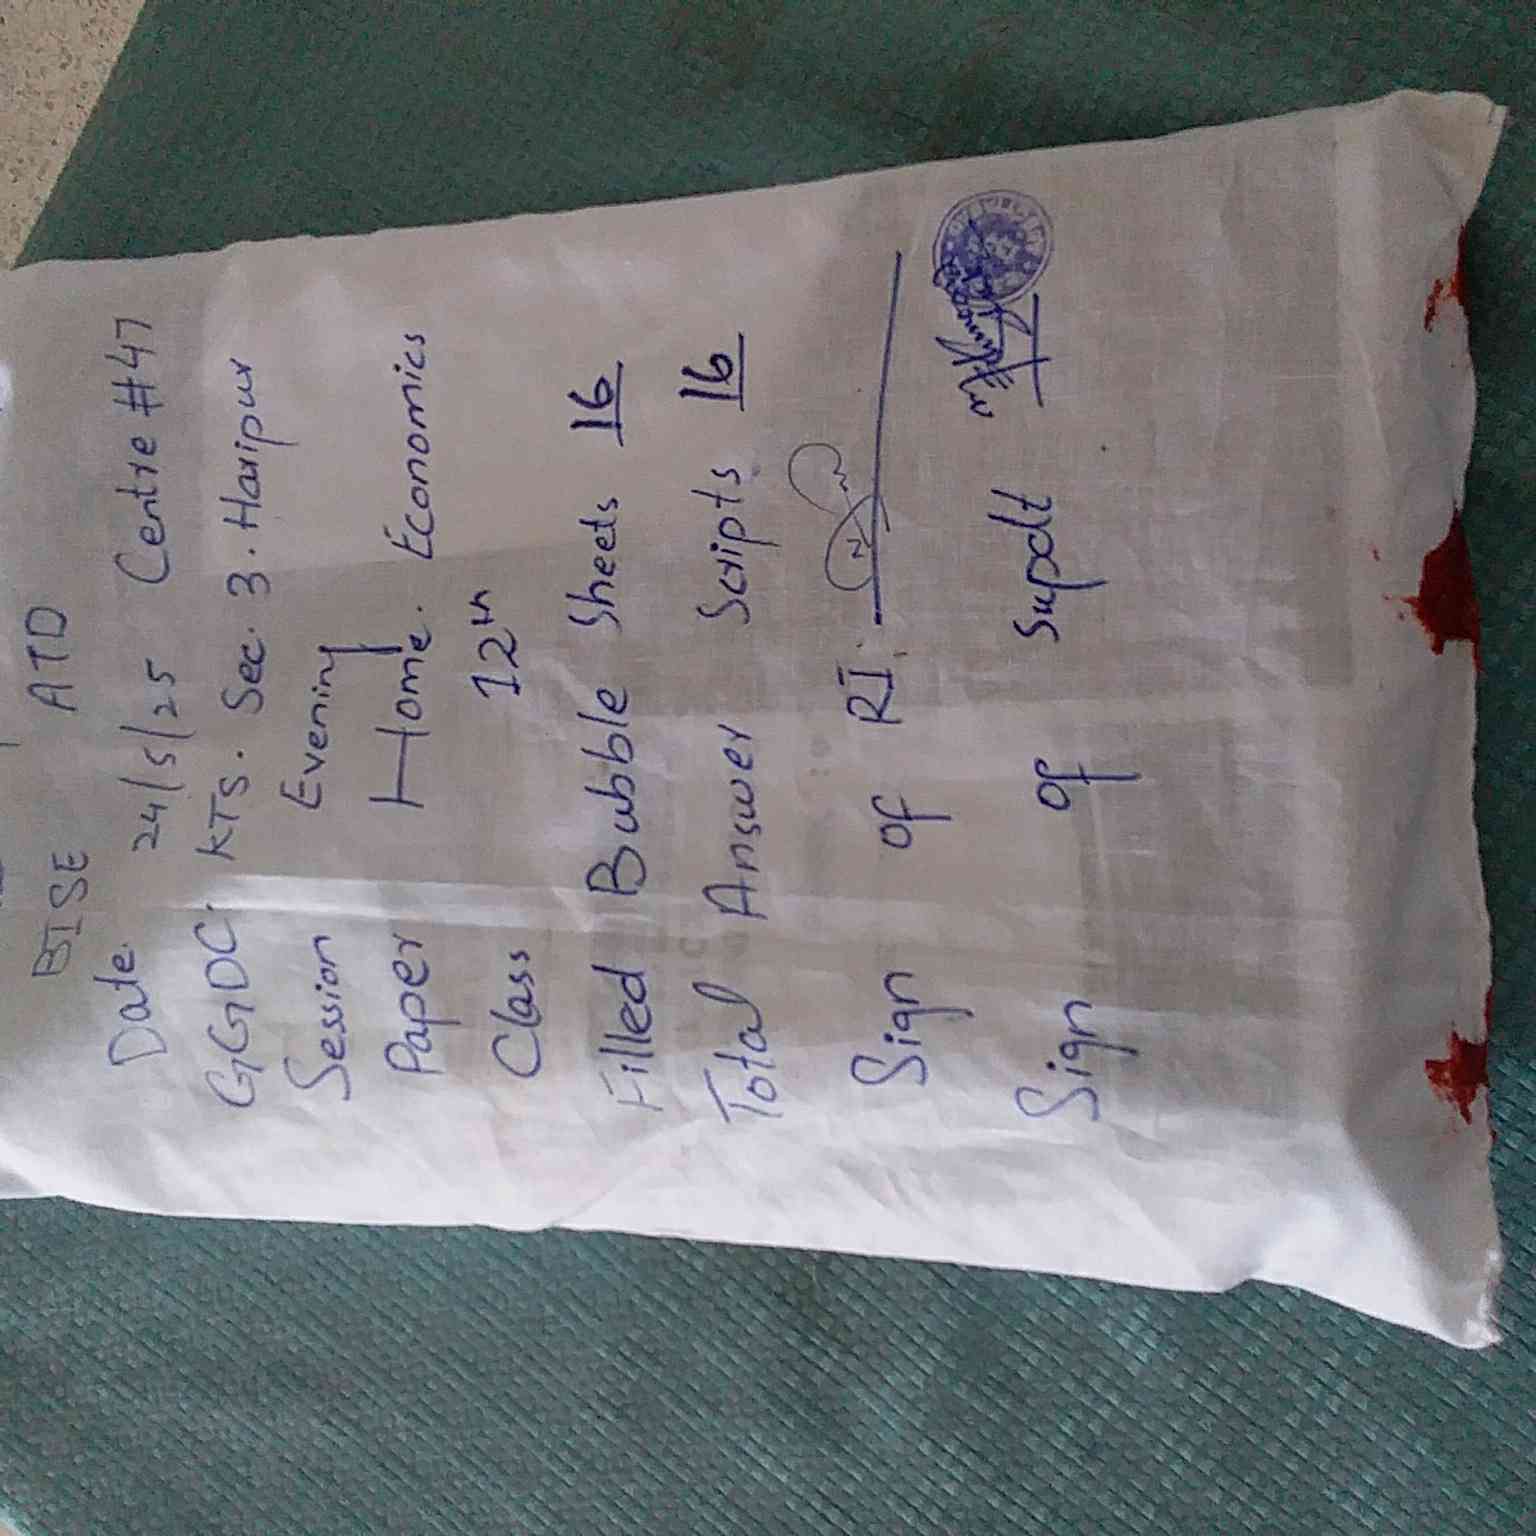 BISE ATD
Date 24/5/25 Centre #47
GGDC KTS. Sec. 3. Haripur
Session Evening
Paper Home. Economics
Class 12th
Filled Bubble Sheets 16
Total Answer Scripts 16
Sign of RI
Sign of Supdt